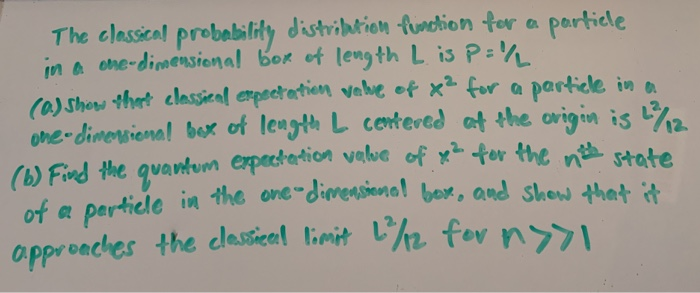 The classical probability distribution function for a particle
in a one-dimensional box of length L is P = 1/L
(a) Show that classical expectation value of x² for a particle in a
one-dimensional box of length L centered at the origin is L²/12
(b) Find the quantum expectation value of x² for the nth state
of a particle in the one-dimensional box, and show that it
approaches the classical limit L²/12 for n>>1